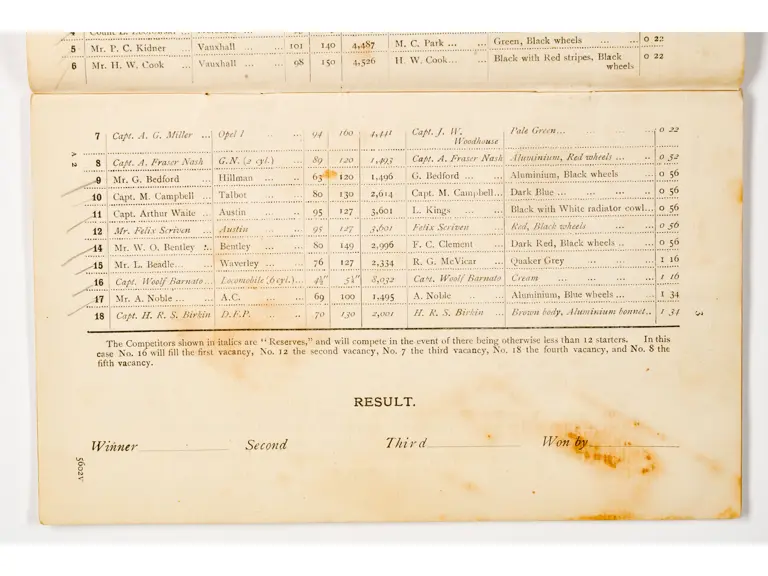 5 Mr. P. C. Kidner ... Vauxhall ... ... 101 140 4,487 M. C. Park ... ... Green, Black wheels ... ... 0 22
6 Mr. H. W. Cook ... Vauxhall ... ... 98 150 4,526 H. W. Cook... ... Black with Red stripes, Black wheels 0 22
7 Capt. A. G. Miller ... Opel I ... ... 94 160 4,441 Capt. J. W. Woodhouse Pale Green... ... ... ... 0 22
A 2
8 Capt. A. Fraser Nash G.N. (2 cyl.) ... 89 120 1,493 Capt. A. Fraser Nash Aluminium, Red wheels ... ... 0 52
9 Mr. G. Bedford ... Hillman ... ... 63 120 1,496 G. Bedford ... ... Aluminium, Black wheels ... 0 56
10 Capt. M. Campbell ... Talbot ... ... 80 130 2,614 Capt. M. Campbell... Dark Blue ... ... ... ... 0 56
11 Capt. Arthur Waite ... Austin ... ... 95 127 3,601 L. Kings ... ... Black with White radiator cowl... 0 56
12 Mr. Felix Scriven ... Austin ... ... 95 127 3,601 Felix Scriven ... Red, Black wheels ... ... 0 56
14 Mr. W. O. Bentley ... Bentley ... ... 80 149 2,996 F. C. Clement ... Dark Red, Black wheels .. ... 0 56
15 Mr. L. Beadle... ... Waverley ... ... 76 127 2,334 R. G. McVicar ... Quaker Grey ... ... ... 1 16
16 Capt. Woolf Barnato ... Locomobile (6 cyl.)... 4½" 5¼" 8,032 Capt. Woolf Barnato Cream ... ... ... ... 1 16
17 Mr. A. Noble ... ... A.C. ... ... 69 100 1,495 A. Noble ... ... Aluminium, Blue wheels ... ... 1 34
18 Capt. H. R. S. Birkin D.F.P. ... ... 70 130 2,001 H. R. S. Birkin ... Brown body, Aluminium bonnet... 1 34
3
The Competitors shown in italics are "Reserves," and will compete in the event of there being otherwise less than 12 starters. In this
case No. 16 will fill the first vacancy, No. 12 the second vacancy, No. 7 the third vacancy, No. 18 the fourth vacancy, and No. 8 the
fifth vacancy.
RESULT.
Winner Second Third Won by
5602V